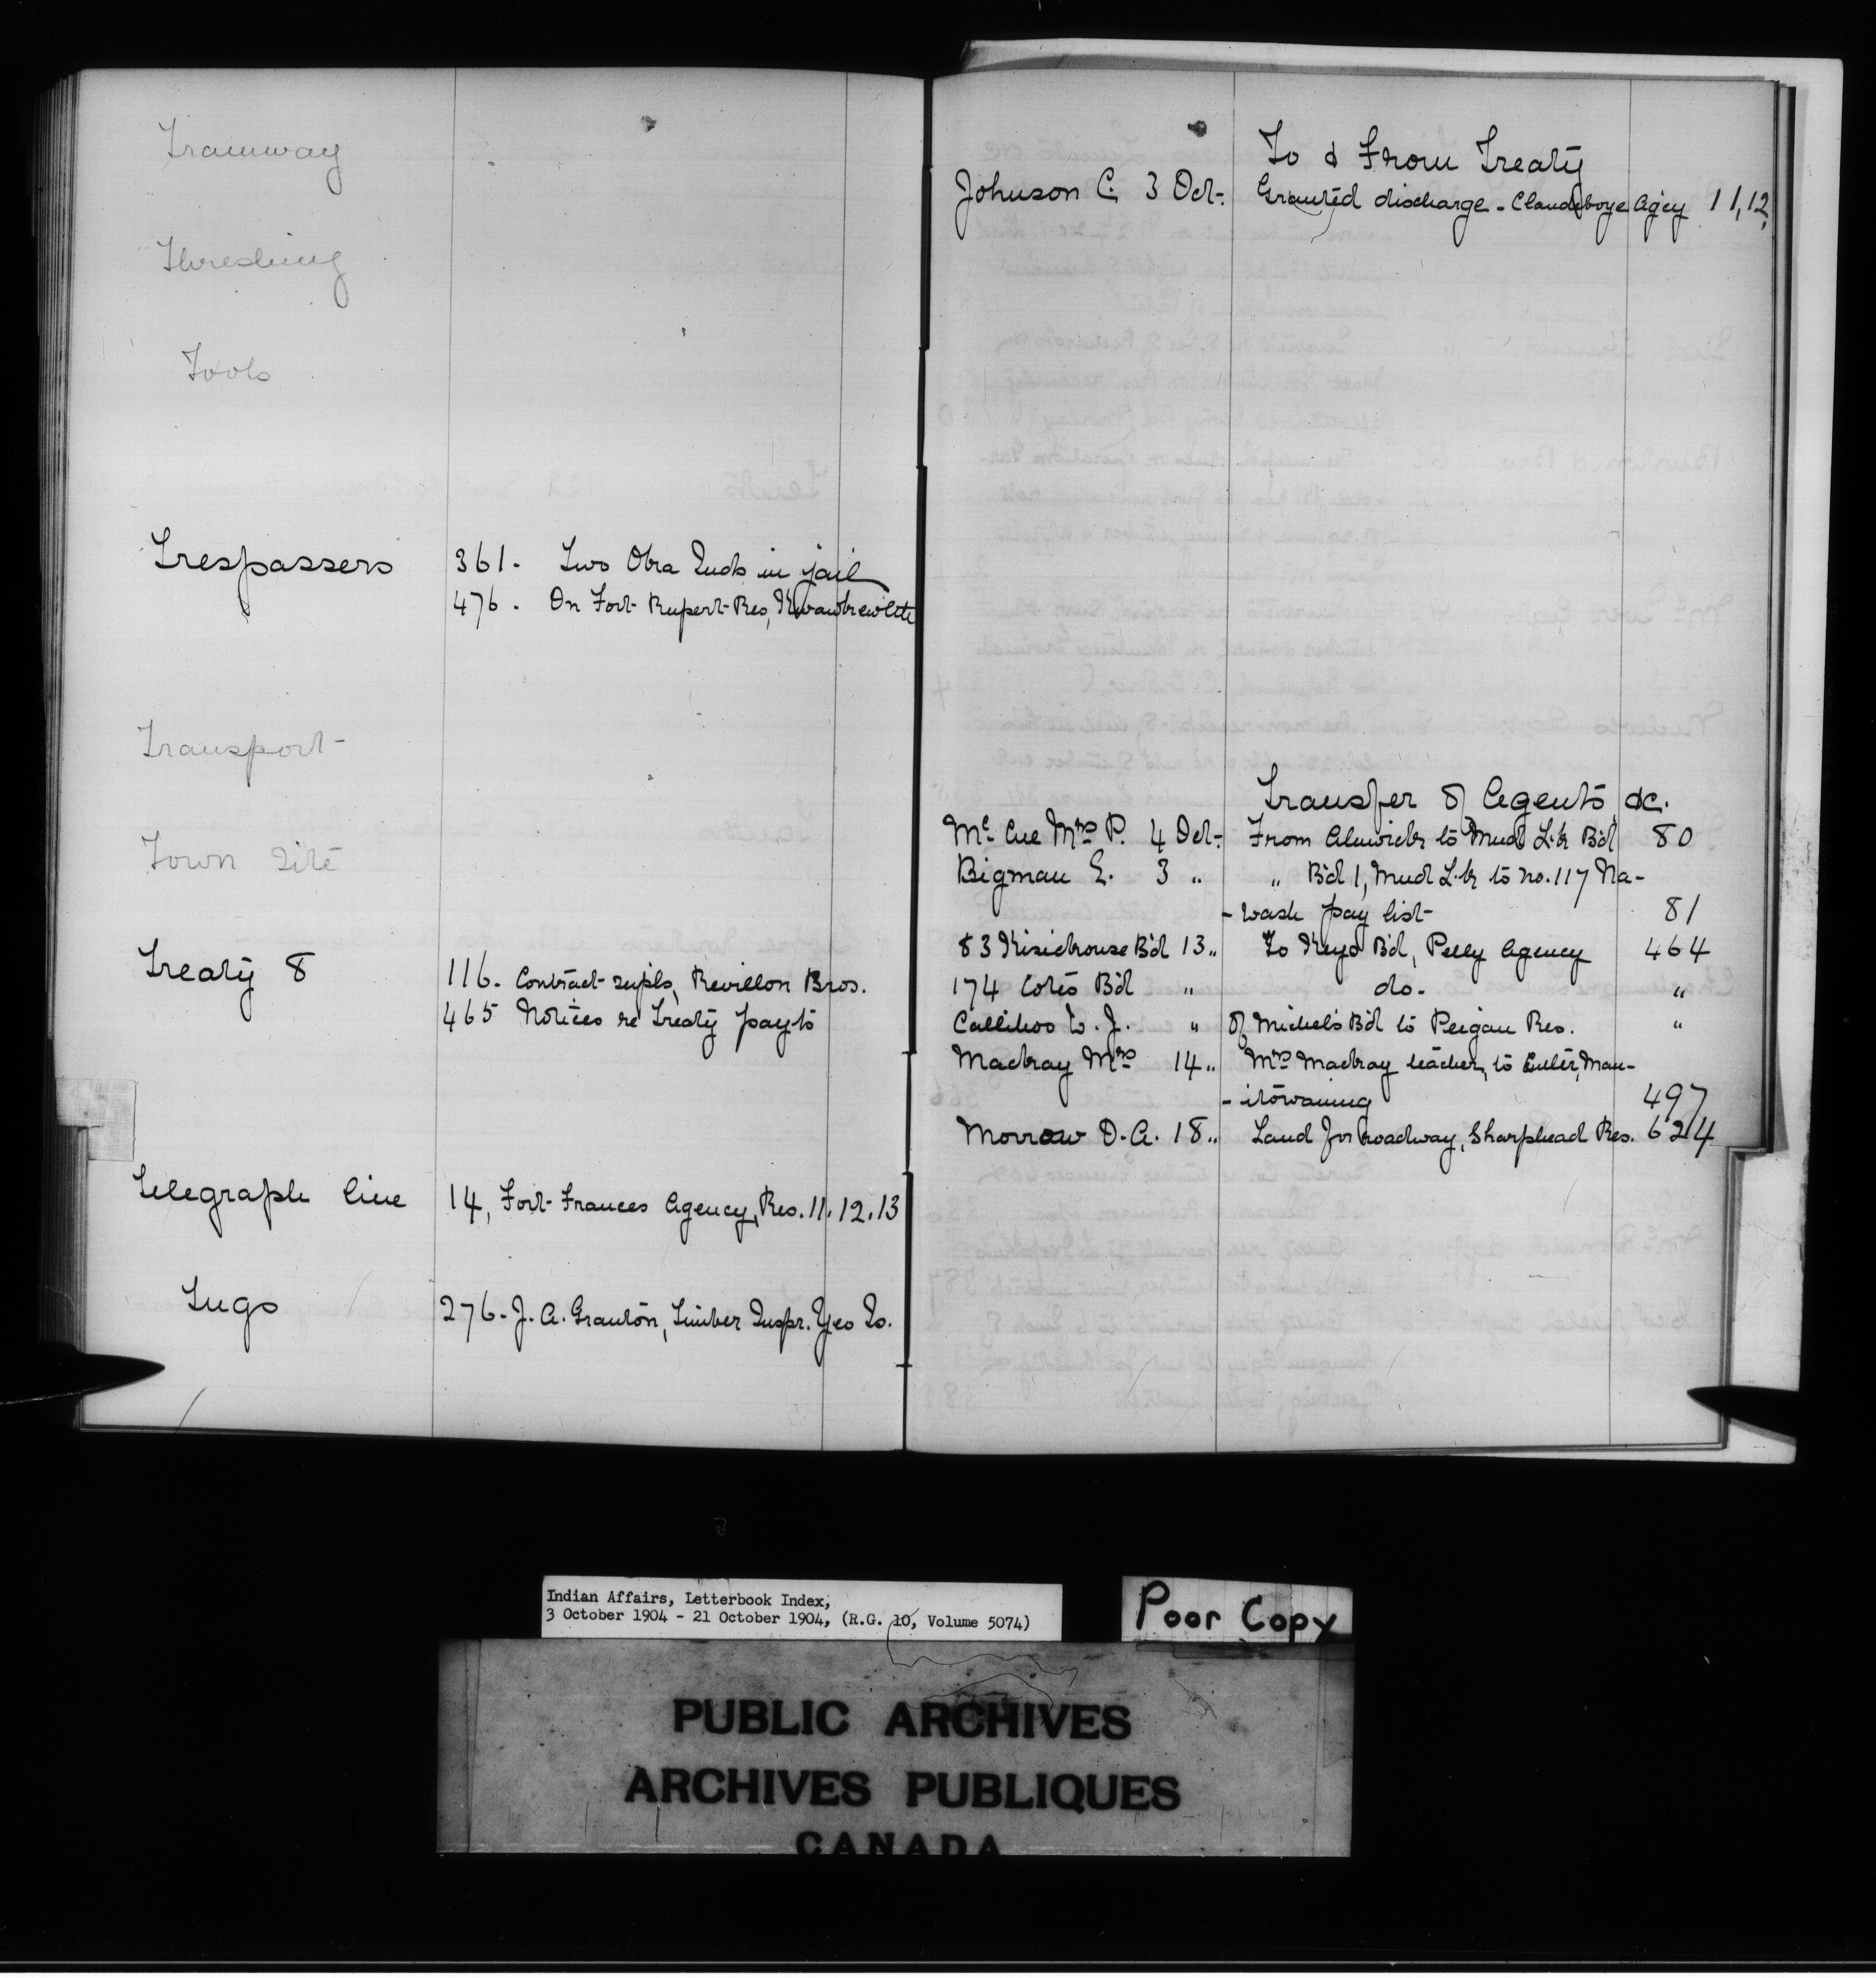 Tramway
Threshing
Tools
Trespassers 361. Two Oka Inds in jail
476. On Fort Rupert Res, Kwawkewlth
Transport
Town Site
Treaty 8 116. Contract supls, Revillon Bros.
465 Notices re Treaty payts
Telegraph line 14, Fort Frances Agency, Res. 11. 12. 13
Tugs 276. J. A. Grauton, Timber Inspr. Geo
To & From Treaty
Johnson C. 3 Oct. Granted discharge - Clandeboye Agcy 11,12,
Transfer of Agents &c.
Mc Cue Mrs P. 4 Oct. From Alnwick to Mud Lk Bd 80
Bigman E. 3 " " Bd 1, Mud Lk to no. 117 Na-
- wash pay list 81
83 Kisickouse Bd 13 " To Keys Bd, Pelly Agency 464
174 Cotés Bd " do. "
Callihoo W. J. " of Michel's Bd to Peigan Res. "
Mackay Mrs 14 " Mrs Mackay teacher, to Man-
- itowaning 497
Morrow D. A. 18 " Land for roadway, Sharphead Res. 624
Indian Affairs, Letterbook Index,
3 October 1904 - 21 October 1904, (R.G. 10, Volume 5074)
Poor Copy
PUBLIC ARCHIVES
ARCHIVES PUBLIQUES
CANADA